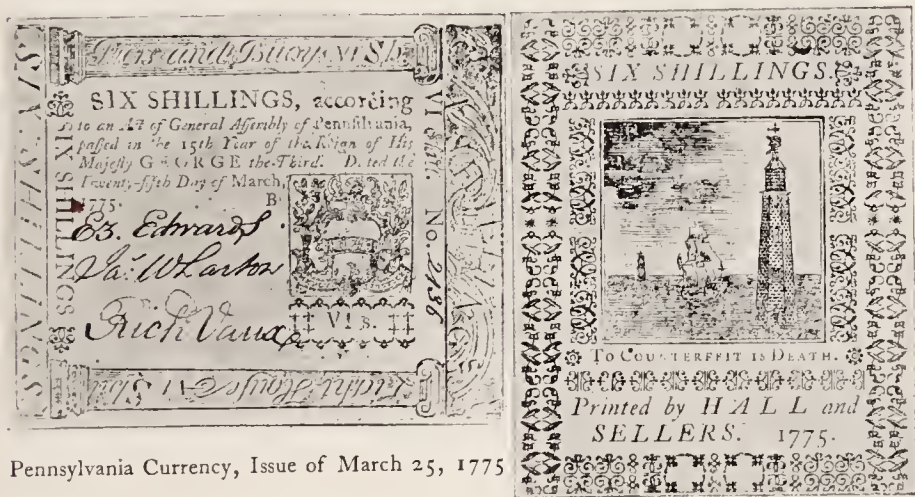 Piers and Buoys VI Sh.
SIX SHILLINGS, according
to an Act of General Assembly of Pennsilvania,
passed in the 15th Year of the Reign of His
Majesty GEORGE the Third. Dated the
Twenty-fifth Day of March,
1775. B
Ez. Edwards
Jas. Wharton
Rich Vaux
VI s.
SIX SHILLINGS
No. 2186
PENNSILVANIA
Light House
SIX SHILLINGS.
TO COUNTERFEIT IS DEATH.
Printed by HALL and
SELLERS. 1775.
Pennsylvania Currency, Issue of March 25, 1775